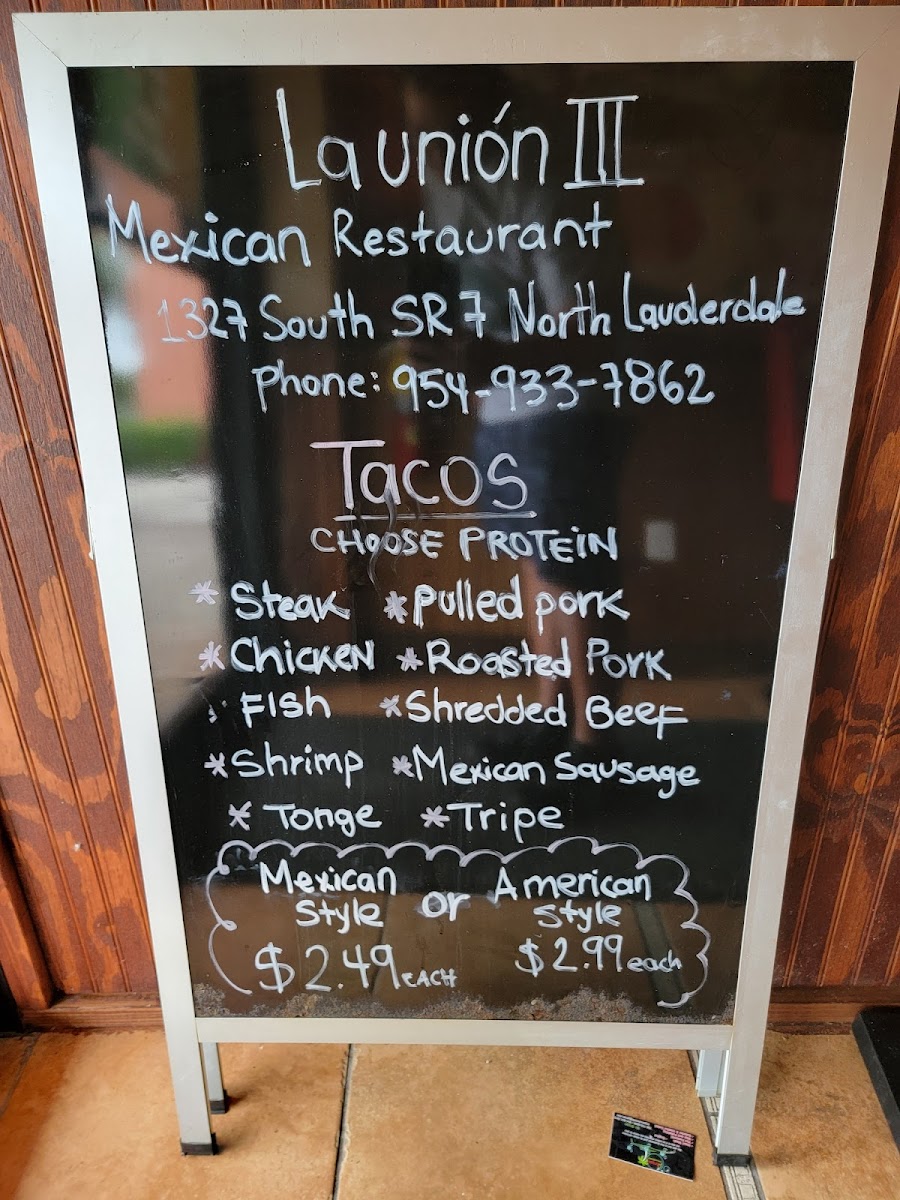 La unión III
Mexican Restaurant
1327 South SR 7 North Lauderdale
Phone: 954-933-7862
Tacos
CHOOSE PROTEIN
* Steak * Pulled pork
* Chicken * Roasted Pork
Fish * Shredded Beef
* Shrimp * Mexican Sausage
* Tonge * Tripe
Mexican Style or American Style
$2.49 EACH $2.99 each